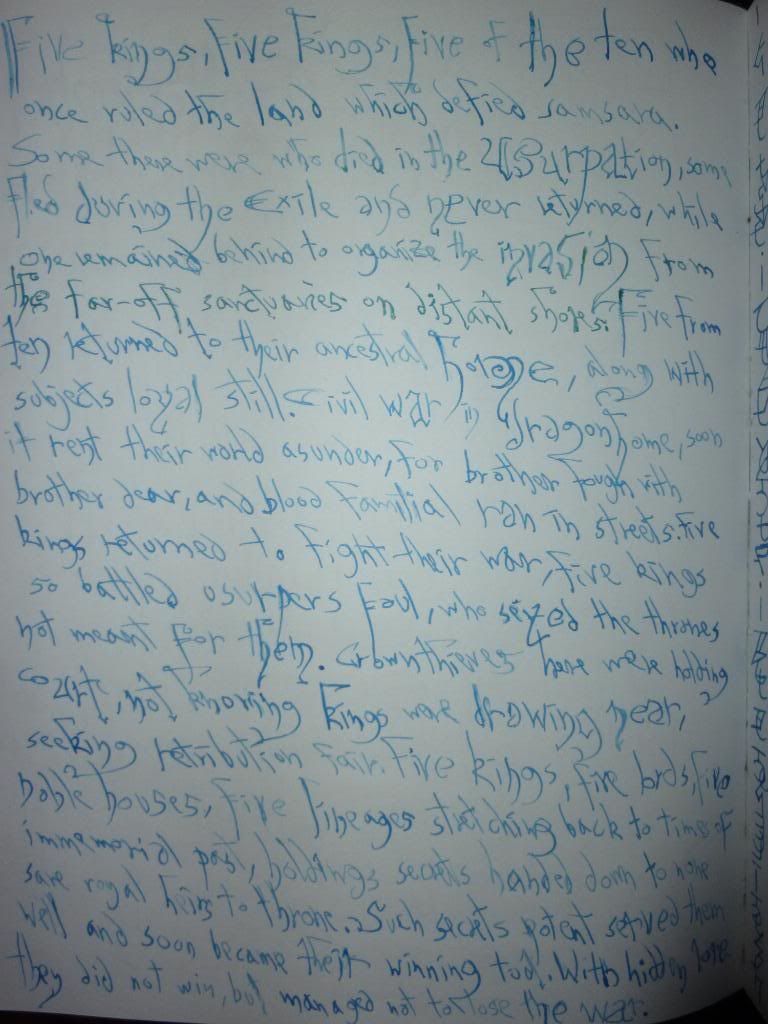 Five kings, Five Kings, five of the ten who
once ruled the land which defied samsara.
Some there were who died in the Usurpation, some
fled during the Exile and never returned, while
one remained behind to organize the invasion from
the far-off sanctuaries on distant shores. Five from
ten returned to their ancestral home, along with
subjects loyal still. Civil war in Dragonhome, soon
it rent their world asunder, for brother fough with
brother dear, and blood familial ran in streets. Five
kings returned to fight their war, five kings
so battled usurpers foul, who seized the thrones
not meant for them. Crownthieves there were holding
court, not knowing kings were drawing near,
seeking retribution fair. Five kings, five lords, five
noble houses, five lineages stretching back to times of
immemorial past, holdings secrets handed down to none
save royal heirs to throne. Such secrets potent served them
well and soon became their winning tool. With hidden lore
they did not win, but managed not to lose the war.